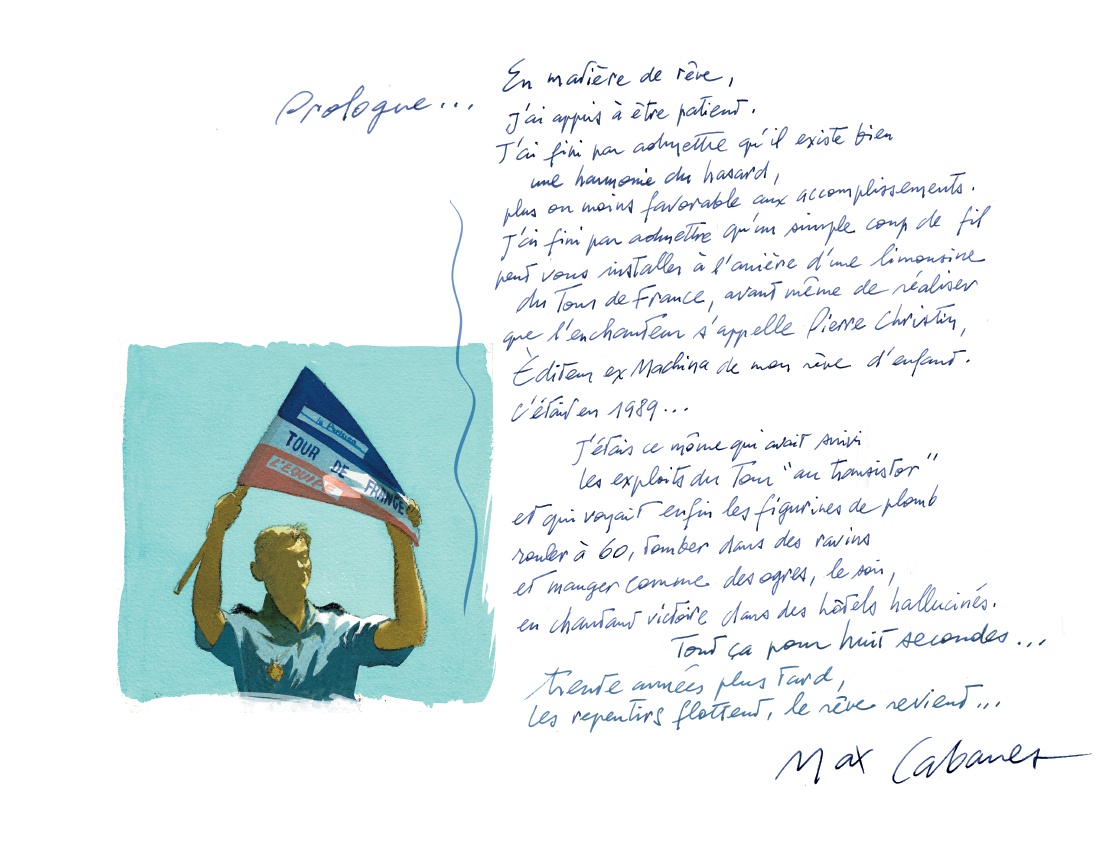 Prologue...
En matière de rêve,
j'ai appris à être patient.
J'ai fini par admettre qu'il existe bien
une harmonie du hasard,
plus ou moins favorable aux accomplissements.
J'ai fini par admettre qu'un simple coup de fil
peut vous installer à l'arrière d'une limousine
du Tour de France, avant même de réaliser
que l'enchanteur s'appelle Pierre Christin,
Éditeur ex Machina de mon rêve d'enfant.
C'était en 1989...
J'étais ce môme qui avait suivi
les exploits du Tour "au transistor"
et qui voyait enfin les figurines de plomb
rouler à 60, tomber dans des ravins
et manger comme des ogres, le soir,
en chantant victoire dans des hôtels hallucinés.
Tout ça pour huit secondes...
trente années plus tard,
les repentirs flottent, le rêve revient...
Max Cabanes
le Parisien
TOUR DE FRANCE
L'EQUIPE